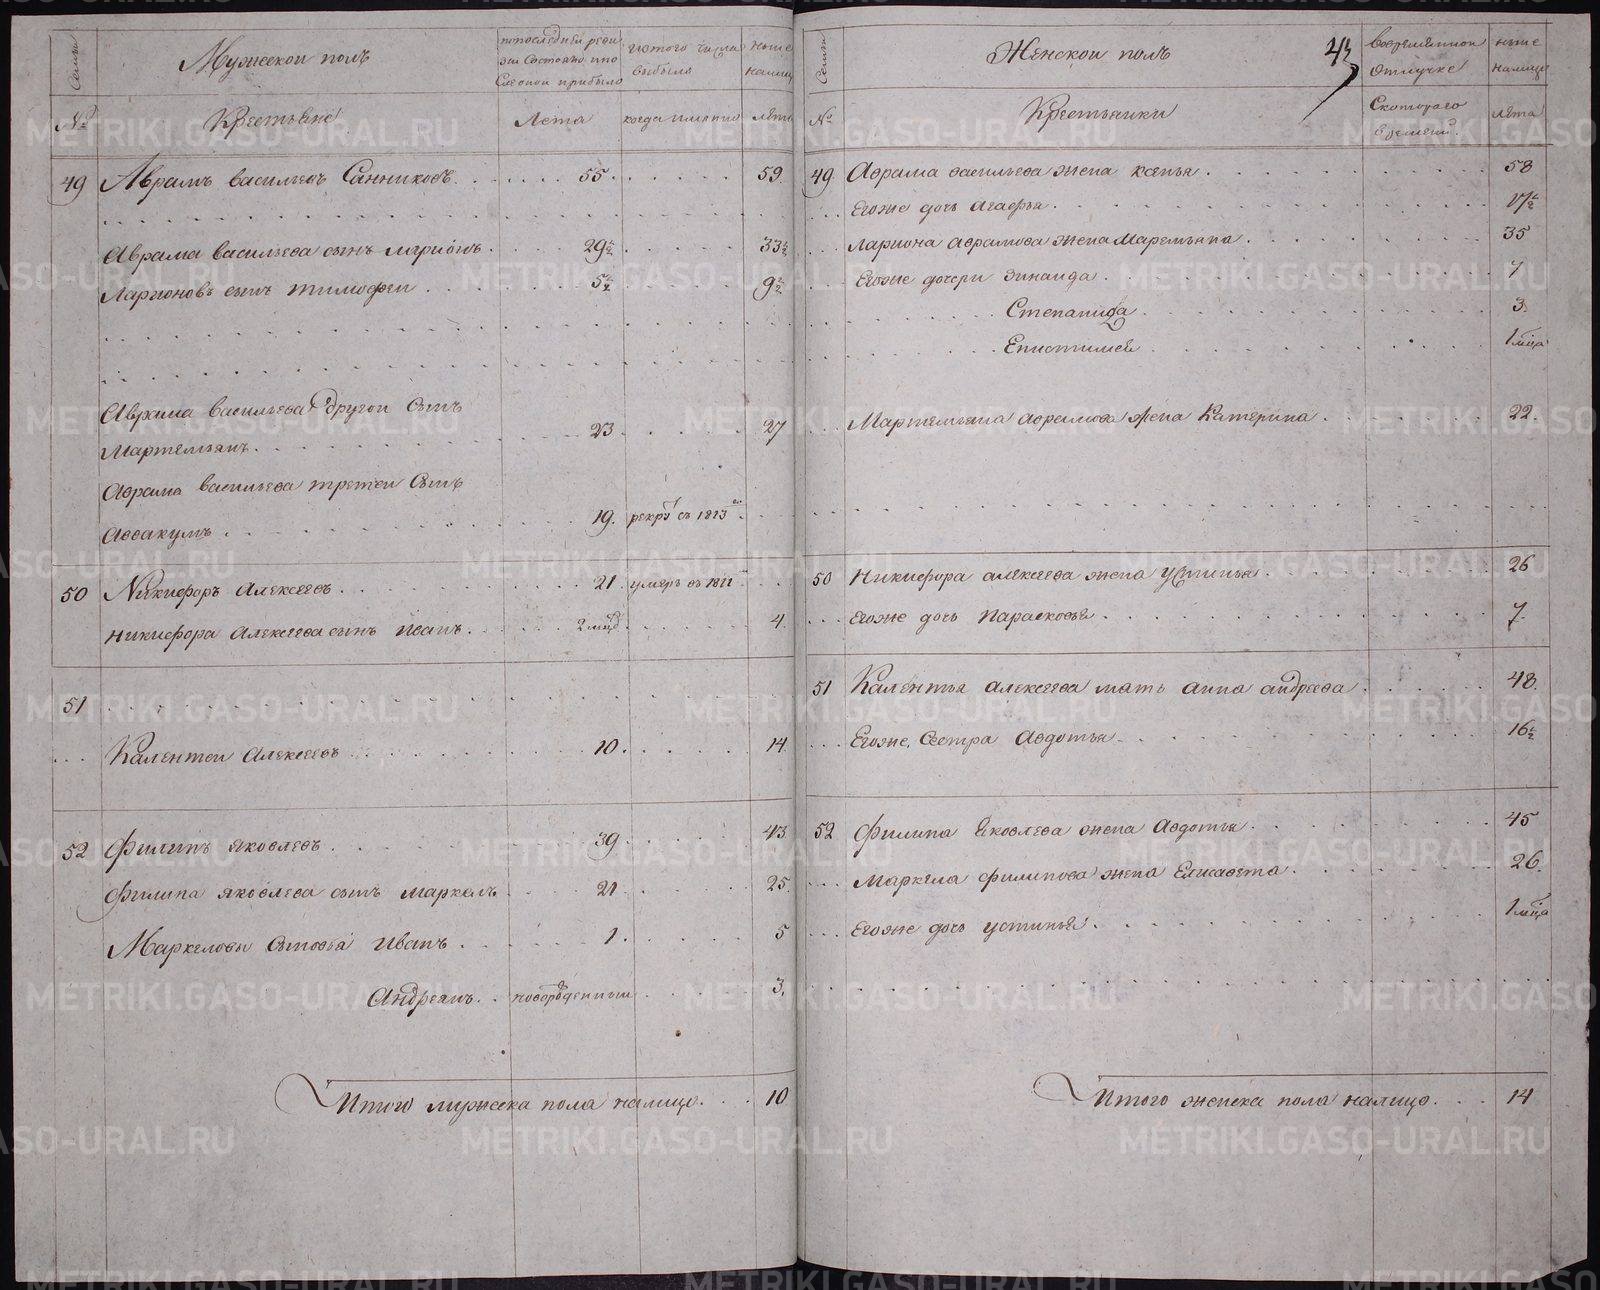 Семьи
Мужескои полъ
попоследнеи реви
зіи Состояло ипо
Слеонои прибыло
изтого числа
выбыло
ныне
налицо
№
Крестьяне
Лета
когда имянно
лета
49 Аврамъ васильевъ Санниковъ 55 59
Аврама васильева сынъ ларионъ 29½ 33½
Ларионовъ сынъ тимофеи 5½ 9½
Аврама васильева другои Сынъ
Мартемьянъ 23 27
Аврама васильева третеи Сынъ
Аввакумъ 19 рекру съ 1813
50 Никифоръ Алексеевъ 21 умеръ въ 1811
Никифора Алексеева сынъ Иванъ 2 мца 4
51
Калентеи Алексеевъ 10 14
52 Филипъ яковлевъ 39 43
Филипа яковлева сынъ маркелъ 21 25
Маркеловы Сыновья Иванъ 1 5
Андреянъ новорожденныи 3
Итого мужеска пола налицо 10
Семьи
Женскои полъ
43
Вовременнои
Отлучке
ныне
налицо
№
Крестьянки
Скотораго
времени
лета
49 Аврама васильева жена ксенья 58
Егоже дочь Агафья 17½
Лариона аврамова жена Маремьяна 35
Егоже дочери Зинаида 7
Степанида 3
Епистимея 1 мца
Мартемьяна аврамова жена Катерина 22
50 Никифора алексеева жена устинья 26
Егоже дочь Парасковья 7
51 Калентья алексеева мать анна андреева 48
Егоже Сестра Авдотья 16½
52 Филипа Яковлева жена Авдотья 45
Маркела филипова жена Елисавета 26
Егоже дочь устинья 1 мца
Итого женска пола налицо 14
METRIKI.GASO-URAL.RU